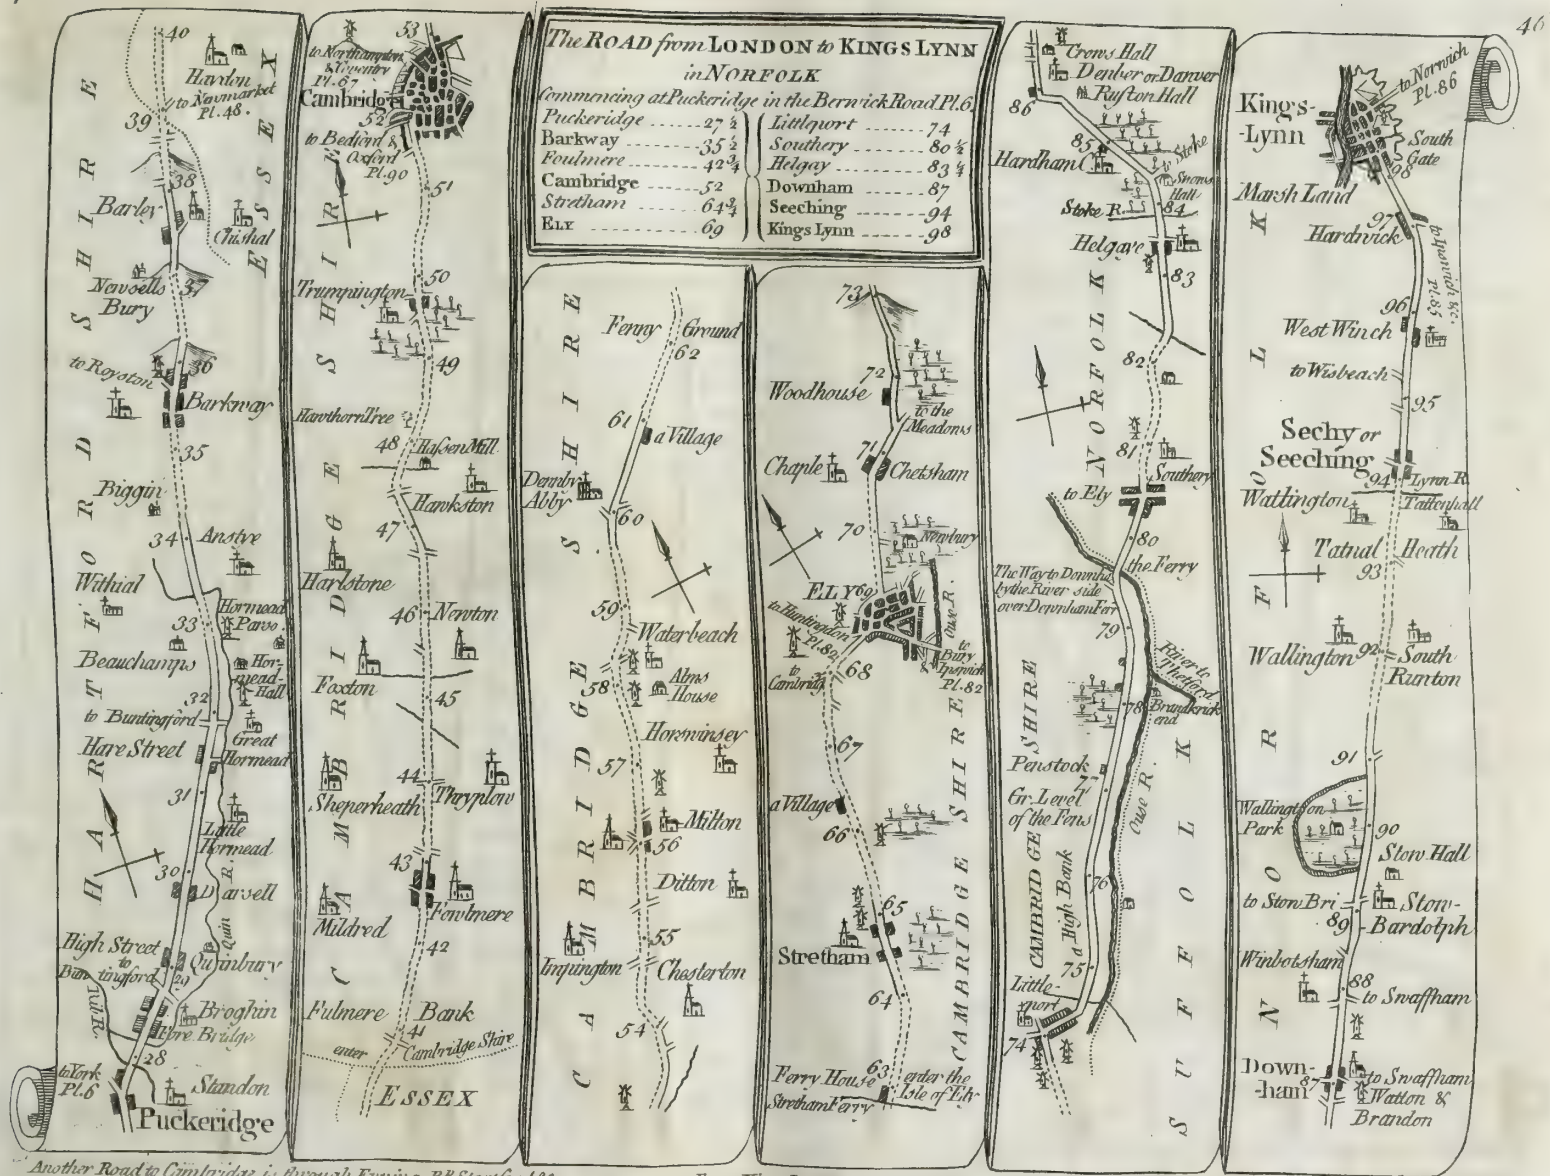 46
The ROAD from LONDON to KINGS LYNN
in NORFOLK
Commencing at Puckeridge in the Berwick Road Pl.6
Puckeridge 27 ½
Barkway 35 ½
Foulmere 42 ¾
Cambridge 52
Stretham 64 ¾
ELY 69
Littleport 74
Southery 80 ½
Helgay 83 ¼
Downham 87
Seeching 94
Kings Lynn 98
HARTFORDSHIRE
ESSEX
40
Haydon
to Newmarket
Pl.48.
39
38
Barley
Chishal
Newsells
Bury
37
to Royston
36
Barkway
35
Biggin
34
Anstye
Withial
Hormead
Parso.
33
Beauchamps
Hor-
mead-
Hall
32
to Buntingford
Great
Hormead
Hare Street
31
Little
Hormead
30
Darsell
Quin R.
High Street
to
Buntingford
29
Quinbury
Broghin
Fore Bridge
28
to York
Pl.6
Standon
Puckeridge
CAMBRIDGE SHIRE
53
to Northampton
& Coventry
Pl.67
Cambridge
52
to Bedford &
Oxford
Pl.90
51
50
Trumpington
49
Hawthorn Tree
48
Hassen Mill
Hawkston
47
Harlstone
46
Newton
Foxton
45
44
Sheperheath
Thryplow
43
Mildred
Fowlmere
42
Fulmere Bank
41
enter Cambridge Shire
ESSEX
CAMBRIDGE SHIRE
Fenny Ground
62
61
a Village
Dennby
Abby
60
59
Waterbeach
58
Alms
House
Horswinsey
57
Milton
56
Ditton
55
Impington
Chesterton
54
CAMBRIDGE SHIRE
73
72
Woodhouse
to the
Meadows
71
Chaple
Chetsham
70
Newbury
ELY 69
to Huntingdon
Pl.82
Ouse R.
to
Bury
Ipswich
Pl.82
68
to
Cambridge
67
a Village
66
65
Stretham
64
Ferry House
63
enter the
Isle of Ely
Stretham Ferry
NORFOLK
CAMBRIDGE SHIRE
SUFFOLK
Crows Hall
Denber or Danver
Ruston Hall
86
85
Hardham C.
to Stoke
Snows
Hall
Stoke R.
84
Helgaye
83
82
81
Southery
to Ely
80
the Ferry
The Way to Downha
by the River side
over Downham Ferr
79
River to
Thetford
78
Brandkrick
end
Penstock
77
Gr. Level
of the Fens
Ouse R.
76
a High Bank
75
Little-
port
74
NORFOLK
Kings-
-Lynn
to Norwich
Pl.86
South
Gate
98
Marsh Land
97
Hardwick
to Ipswich &c.
Pl.85
96
West Winch
to Wisbeach
95
Sechy or
Seeching
94
Lynn R.
Watlington
Tattenhall
Tatnal Heath
93
Wallington
92
South
Runton
91
Wallington
Park
90
Stow Hall
to Stow Bri
89
Stow-
-Bardolph
Winbotsham
88
to Swaffham
Down-
-ham
87
to Swaffham
Watton &
Brandon
Another Road to Cambridge is through Epping